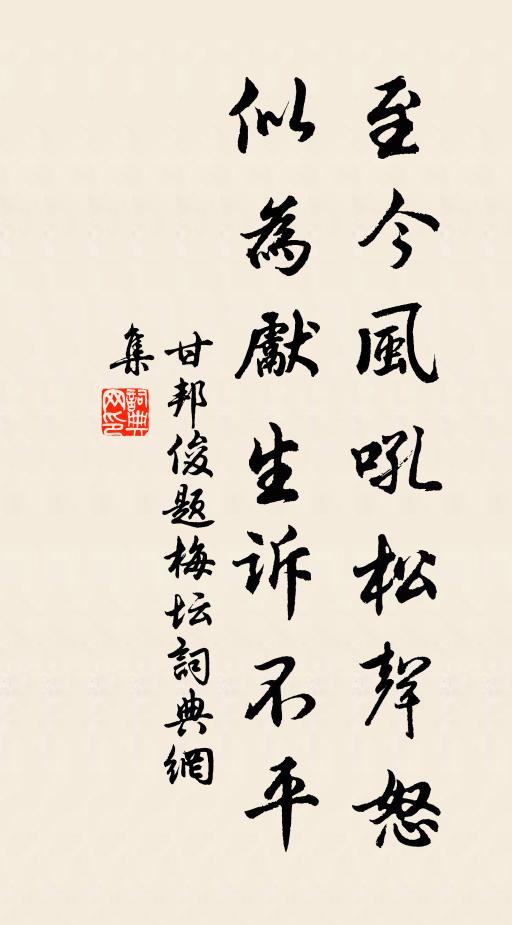 至今風吼松聲怒
似為獻生訴不平
甘邦俊题梅坛詞典網
集
詞典网印